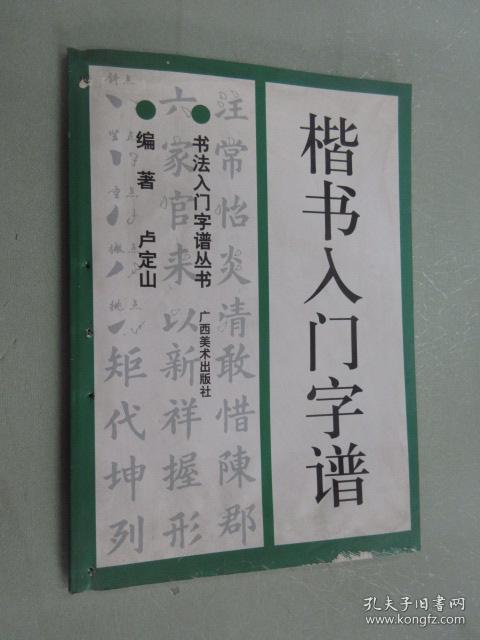 楷书入门字谱
书法入门字谱丛书
广西美术出版社
编著 卢定山
注常怡炎清敢惜陳郡
六家官来以新祥握形
矩代坤列
斜点
挑点
孔夫子旧书网
www.kongfz.com